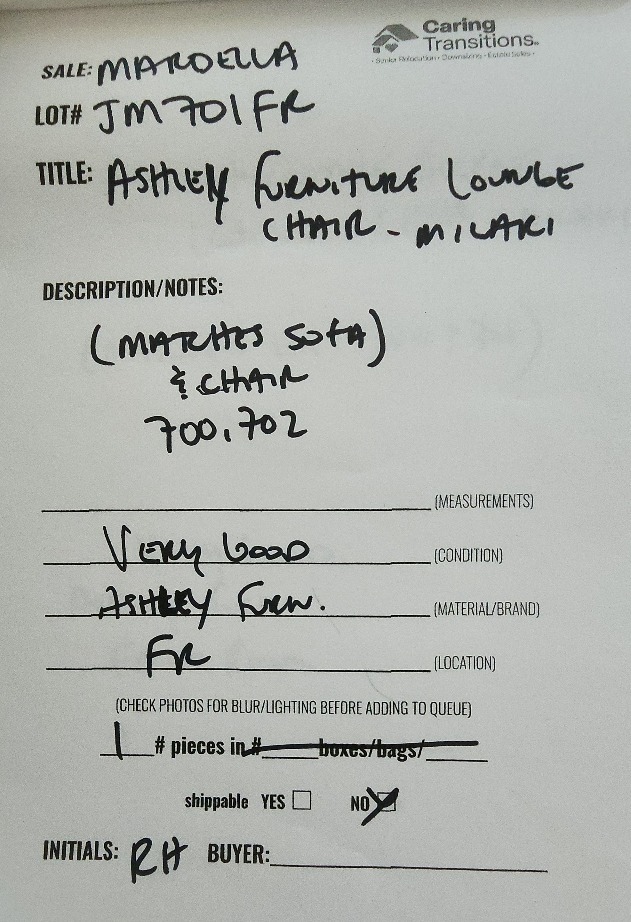 Caring
Transitions
Senior Relocation • Downsizing • Estate Sales
SALE: MARDELLA
LOT# JM701FR
TITLE: ASHLEY FURNITURE LOUNGE
CHAIR - MILARI
DESCRIPTION/NOTES:
(MATCHES SOFA)
& CHAIR
700, 702
(MEASUREMENTS)
VERY GOOD (CONDITION)
ASHLEY FURN. (MATERIAL/BRAND)
FR (LOCATION)
(CHECK PHOTOS FOR BLUR/LIGHTING BEFORE ADDING TO QUEUE)
1 # pieces in # boxes/bags/
shippable YES ☐ NO ☒
INITIALS: RH BUYER: